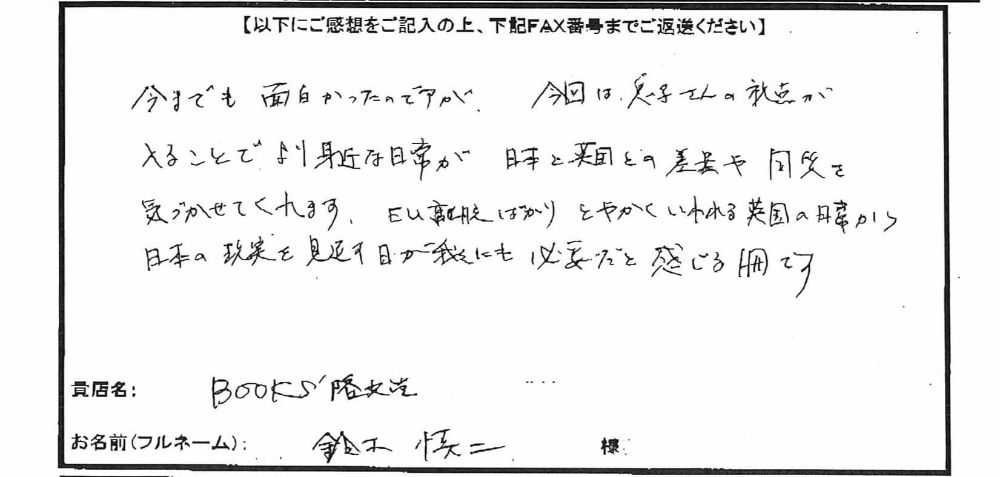 【以下にご感想をご記入の上、下記FAX番号までご返送ください】
今までも面白かったのですが、今回は、息子さんの視点が
入ることでより身近な日常が日本と英国との差異や同質を
気づかせてくれます。EU離脱ばかりとやかくいわれる英国の日常から
日本の現実を見返す目が我々にも必要だと感じる冊です
貴店名: BOOKS隆文堂
お名前(フルネーム): 鈴木慎二 様